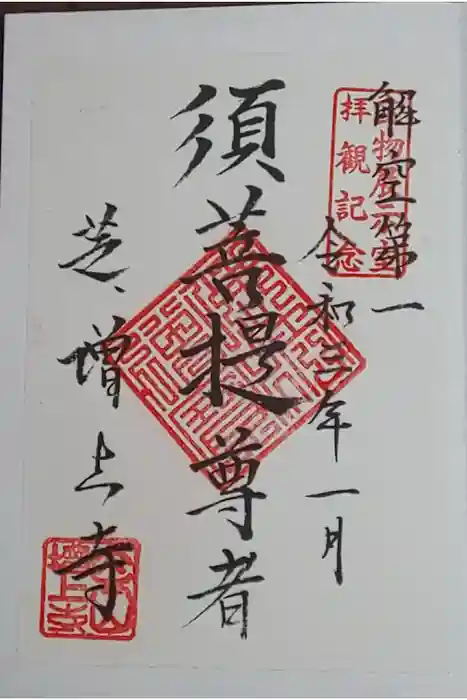 解空第一
宝物展示室
拝観記念
令和三年一月
須菩提尊者
芝、増上寺
三縁山
増上寺